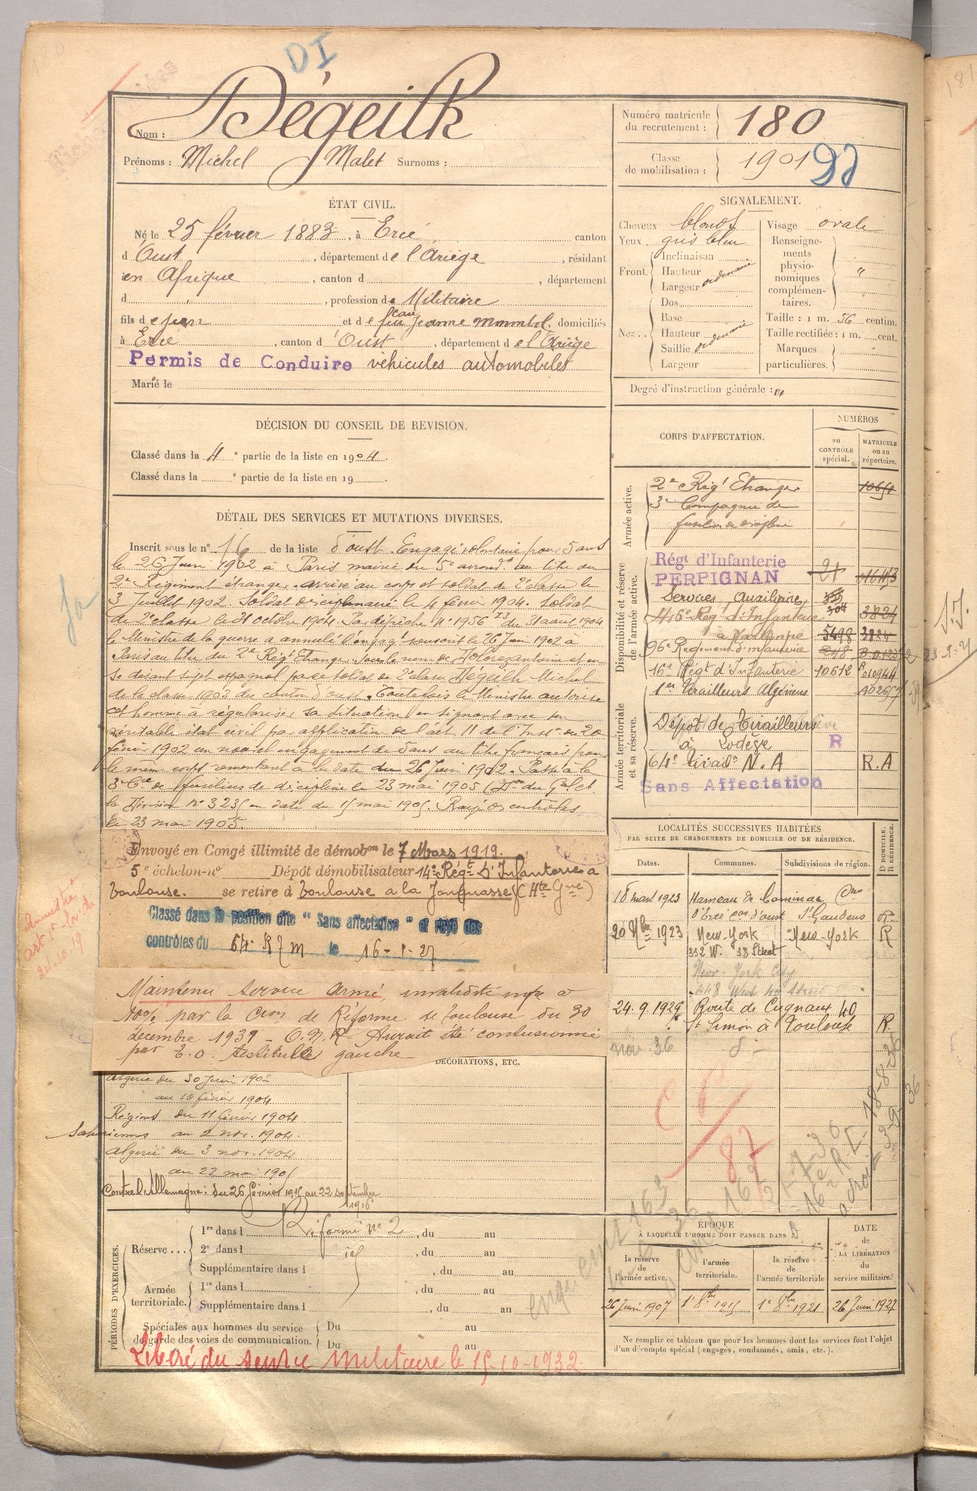 DI
Nom : Dégeilh
Prénoms : Michel Malet Surnoms :
Numéro matricule du recrutement : 180
Classe de mobilisation : 1901 99
ÉTAT CIVIL.
Né le 25 février 1883, à Ercé canton
d'Oust, département de l'Ariège, résidant
en Afrique, canton d , département
d , profession de Militaire
fils de Jean et de feu Jeanne , domiciliés
à Ercé, canton d'Oust, département de l'Ariège
Permis de Conduire véhicules automobiles
Marié le
SIGNALEMENT.
Cheveux blonds
Yeux gris bleu
Front Inclinaison
Hauteur
Largeur ordinaire
Nez Dos
Base
Hauteur
Saillie ordinaire
Largeur
Visage ovale
Renseignements physionomiques complémentaires. "
Taille : 1 m. 56 centim.
Taille rectifiée : 1 m. cent.
Marques particulières.
Degré d'instruction générale :
DÉCISION DU CONSEIL DE REVISION.
Classé dans la 4e partie de la liste en 1904.
Classé dans la e partie de la liste en 19
DÉTAIL DES SERVICES ET MUTATIONS DIVERSES.
Inscrit sous le n° 16 de la liste d'Oust. Engagé volontaire pour 5 ans
le 26 Juin 1902 à Paris mairie du 5e arrondt au titre du
2e Régiment étranger. arrivé au corps et soldat de 2e classe le
3 Juillet 1902. Soldat disciplinaire le 4 février 1904. Soldat
de 2e classe le 31 octobre 1904. Par dépêche n° 1956 du 31 août 1904
le Ministre de la guerre a annulé l'engagt souscrit le 26 Juin 1902 à
Paris au titre du 2e Régt Etranger sous le nom de et en
se disant sujet espagnol par le soldat de 2e classe Dégeilh Michel
de la classe 1903 du canton d'Oust. Toutefois le Ministre autorise
cet homme à régulariser sa situation en signant avec son
véritable état civil par application de l'art. 11 de l'Inston du 20
février 1902 un nouvel engagement de 5 ans au titre français pour
le même corps remontant à la date du 26 Juin 1902. Passé à la
3e Cie de fusiliers de discipline le 23 mai 1905 ( du Gal Ct
la Division n° 323 en date du 15 mai 1905. Rayé des contrôles
le 23 mai 1905.
Envoyé en Congé illimité de démobon le 7 Mars 1919.
5e échelon-n° Dépôt démobilisateur 14e Régt d'Infanterie à
Toulouse. se retire à Toulouse a la (Hte Gne)
Classé dans la position dite "Sans affectation" et rayé des
contrôles du 64e R T M le 16-1-27
Maintenu service armé, invalidité infre à
10% par la Con de Réforme de Toulouse du 30
décembre 1939
gauche
DÉCORATIONS, ETC.
Algérie du 30 Juin 1902
au 10 février 1904
Régions du 11 février 1904
Sahariennes au 2 nov. 1904.
Algérie du 3 nov. 1904
au 22 mai 1905
Contre l'Allemagne : du 26 février 1915 au 22 septembre
1916
CORPS D'AFFECTATION.
NUMÉROS
au CONTRÔLE spécial.
MATRICULE ou au répertoire.
Armée active.
2e Régt Etranger
3e Compagnie de
fusiliers de discipline
Disponibilité et réserve de l'armée active.
Régt d'Infanterie
PERPIGNAN
Services Auxiliaires
96e Régiment d'infanterie
16e Régt d'Infanterie 10512
1er Tirailleurs Algériens
Armée territoriale et sa réserve.
Dépôt de Tirailleurs
à Lodève R
64e Tiraillrs N.A R.A
Sans Affectation
LOCALITÉS SUCCESSIVES HABITÉES
PAR SUITE DE CHANGEMENTS DE DOMICILE OU DE RÉSIDENCE.
Dates. Communes. Subdivisions de région. D DOMICILE. R RÉSIDENCE.
18 mars 1923 Hameau de Cominac
d'Ercé con d'Oust St Gaudens R
20 1923 New-York New-York R
332 W. 38 Street
New-York City
448 West 40 Street
24.9.1926 Route de Cugnaux 40
St Simon à Toulouse R.
nov. 36 d° -
C 6/87
PÉRIODES D'EXERCICES.
Réserve... 1re dans l Réformé n° 2 , du au
2e dans l , du au
Supplémentaire dans l , du au
Armée territoriale. 1re dans l , du au
Supplémentaire dans l , du au
Spéciales aux hommes du service de garde des voies de communication. Du au
Du au
Libéré du service militaire le 15-10-1932
ÉPOQUE
À LAQUELLE L'HOMME DOIT PASSER DANS
la réserve de l'armée active.
l'armée territoriale.
la réserve de l'armée territoriale
DATE de LA LIBÉRATION du service militaire.
26 Juin 1907 1er 8bre 1915 1er 8bre 1921 26 Juin 1927
Ne remplir ce tableau que pour les hommes dont les services font l'objet
d'un décompte spécial (engagés, condamnés, omis, etc.).